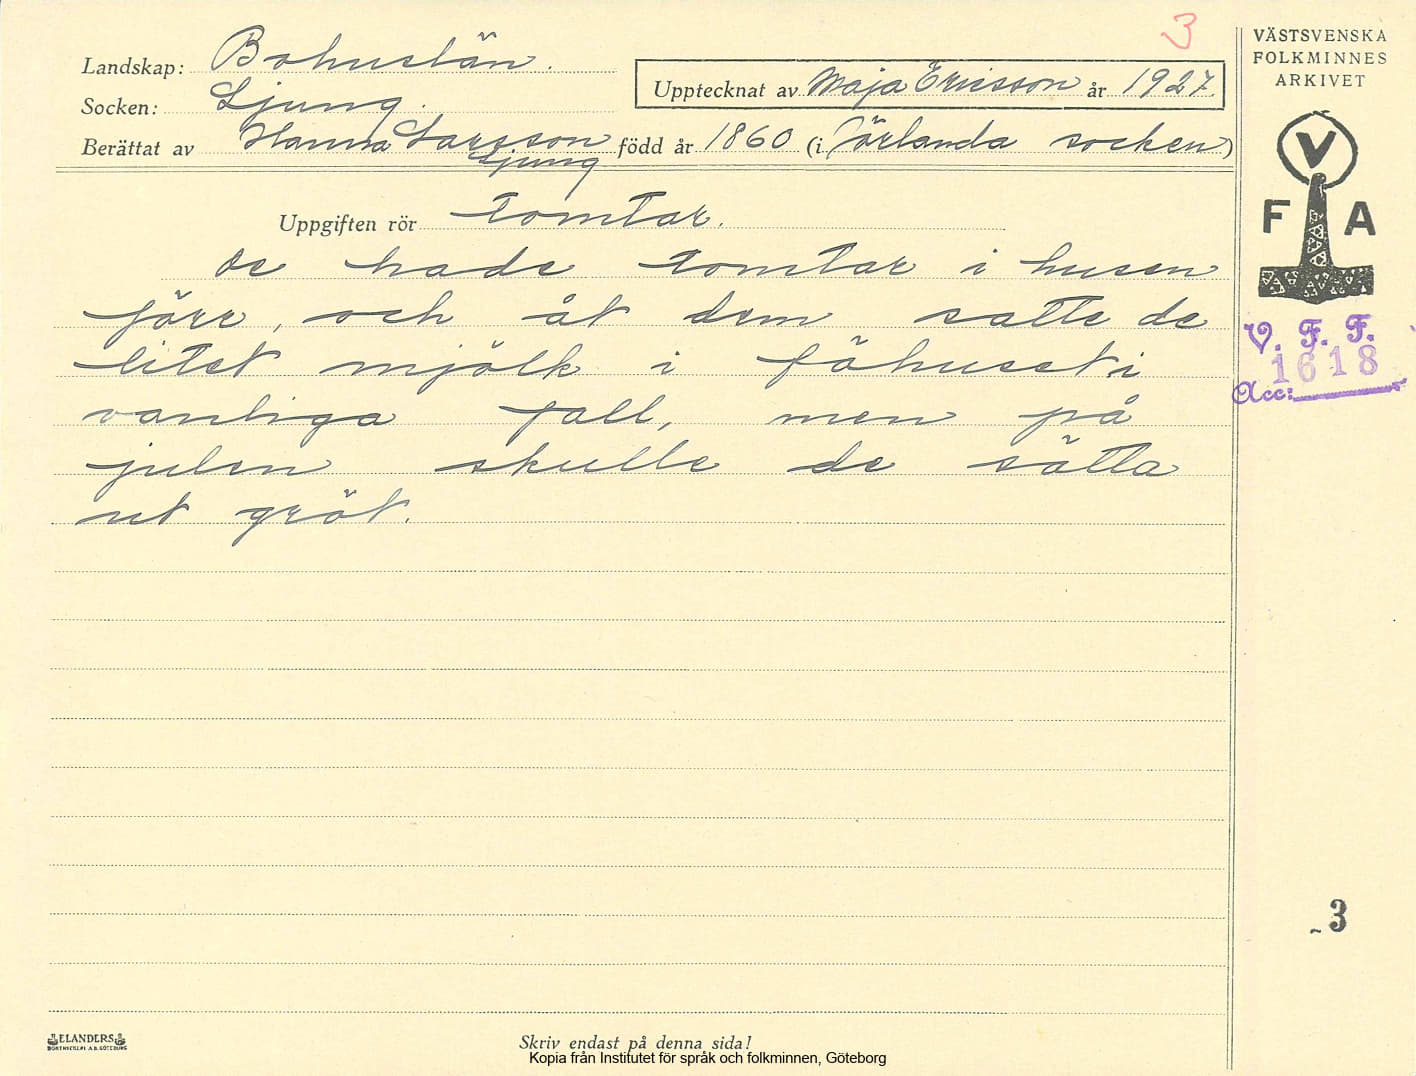 3
VÄSTSVENSKA
FOLKMINNES
ARKIVET
Landskap: Bohuslän.
Upptecknat av Maja Ericsson år 1927.
Socken: Ljung.
Berättat av Hanna Larsson född år 1860 (i Jörlanda socken)
Ljung
V
F A
Uppgiften rör tomtar.
De hade tomtar i husen
förr, och åt dem satte de
litet mjölk i fähuset i
vanliga fall, men på
julen skulle de sätta
ut gröt.
V. F. F.
1618
Acc:
3
ELANDERS
BOKTRYCKERI A.B. GÖTEBORG
Skriv endast på denna sida!
Kopia från Institutet för språk och folkminnen, Göteborg